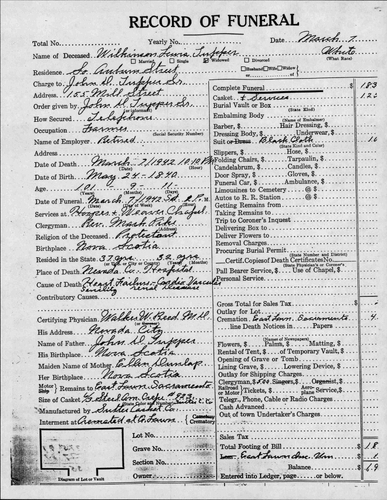 RECORD OF FUNERAL
Total No.
Yearly No.
Date March 7
Name of Deceased Wilkinson Tupper
White
(What Race)
Married Single Widowed Divorced
Husband Wife Widow
Residence So. Auburn Street
Charge to John D. Tupper Sr.
Address 155 Mill Street
Order given by John D. Tupper Sr.
How Secured Telephone
Occupation Farmer
(Social Security Number)
Name of Employer Retired
Address
Date of Death March 7, 1942
Date of Birth May 24-1840
Age 101 - 9 - 11
Date of Funeral March 9, 1942
Services at Hooper & Weaver Chapel
Clergyman Rev. Mark
Religion of the Deceased Protestant
Birthplace Nova Scotia
Resided in the State 37 yrs.
Place of Death Nevada Co. Hospital
Cause of Death Heart Failure - Cardio Vascular
Senility Renal Disease
Contributory Causes
Certifying Physician Walter W. Reed M.D.
His Address Nevada City
Name of Father John D. Tupper
His Birthplace Nova Scotia
Maiden Name of Mother Ellen Dunlap
Her Birthplace Nova Scotia
Remains to East Lawn, Sacramento
Size of Casket
Manufactured by Sutter Casket Co.
Interment at Cremated at E. Lawn
Cemetery
Crematory
Lot No.
Grave No.
Section No.
Block No.
Owner
Diagram of Lot or Vault
Complete Funeral $ 183
Casket & Services
Burial Vault or Box
(State Kind)
Embalming Body
(Name of Embalmer)
Barber, $ Hair Dressing, $
Dressing Body, $ Underwear, $
Suit or Dress Black Cloth
(State Kind and Color)
Slippers, $ Hose, $
Folding Chairs, $ Tarpaulin, $
Candelabrum, $ Candles, $
Door Spray, $ Gloves, $
Funeral Car, $ Ambulance, $
Limousines to Cemetery @ $
Autos to R. R. Station @ $
Getting Remains from
Taking Remains to
Trip to Coroner's Inquest
Delivering Box to
Deliver Flowers to
Removal Charges
Procuring Burial Permit
(State Number and District)
Certif. Copies of Death Certificates No.
(State No. and County)
Pall Bearer Service, $ Use of Chapel, $
Personal Service
Gross Total for Sales Tax
Outlay for Lot
Cremation East Lawn Sacramento
line Death Notices in Papers
(Names of Newspapers)
Flowers, $ Palms, $ Matting, $
Rental of Tent, $ of Temporary Vault, $
Opening of Grave or Tomb
Lining Grave, $ Lowering Device, $
Outlay for Shipping Charges
Clergyman, $ Singers, Organist, $
Tickets, $ Auto Service, $
Telegr., Phone, Cable or Radio Charges
Cash Advanced
Out of Town Undertaker's Charges
Sales Tax
Total Footing of Bill $
Less
Balance
Entered into Ledger, page or below.